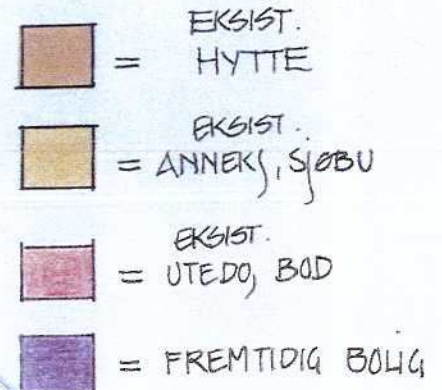 EKSIST.
= HYTTE
EKSIST.
= ANNEKS, SJØBU
EKSIST.
= UTEDO, BOD
= FREMTIDIG BOLIG